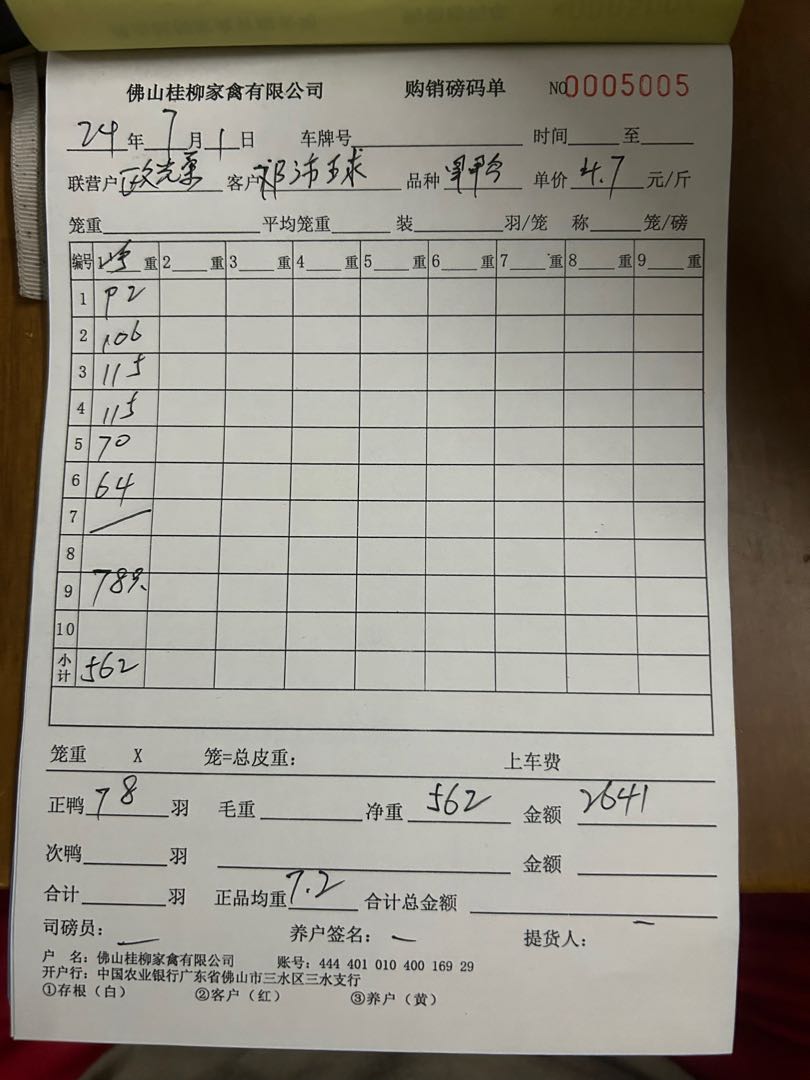 佛山桂柳家禽有限公司 购销磅码单 NO0005005
24年7月1日 车牌号 时间 至
联营户 客户 品种 单价4.7元/斤
笼重 平均笼重 装 羽/笼 称 笼/磅
编号 1 重 2 重 3 重 4 重 5 重 6 重 7 重 8 重 9 重
1 92
2 106
3 115
4 115
5 70
6 64
7
8
9 78
10
小计 562
笼重 X 笼=总皮重: 上车费
正鸭78羽 毛重 净重562 金额2641
次鸭 羽 金额
合计 羽 正品均重7.2 合计总金额
司磅员: 养户签名: 提货人:
户 名: 佛山桂柳家禽有限公司 账号: 444 401 010 400 169 29
开户行: 中国农业银行广东省佛山市三水区三水支行
①存根（白） ②客户（红） ③养户（黄）